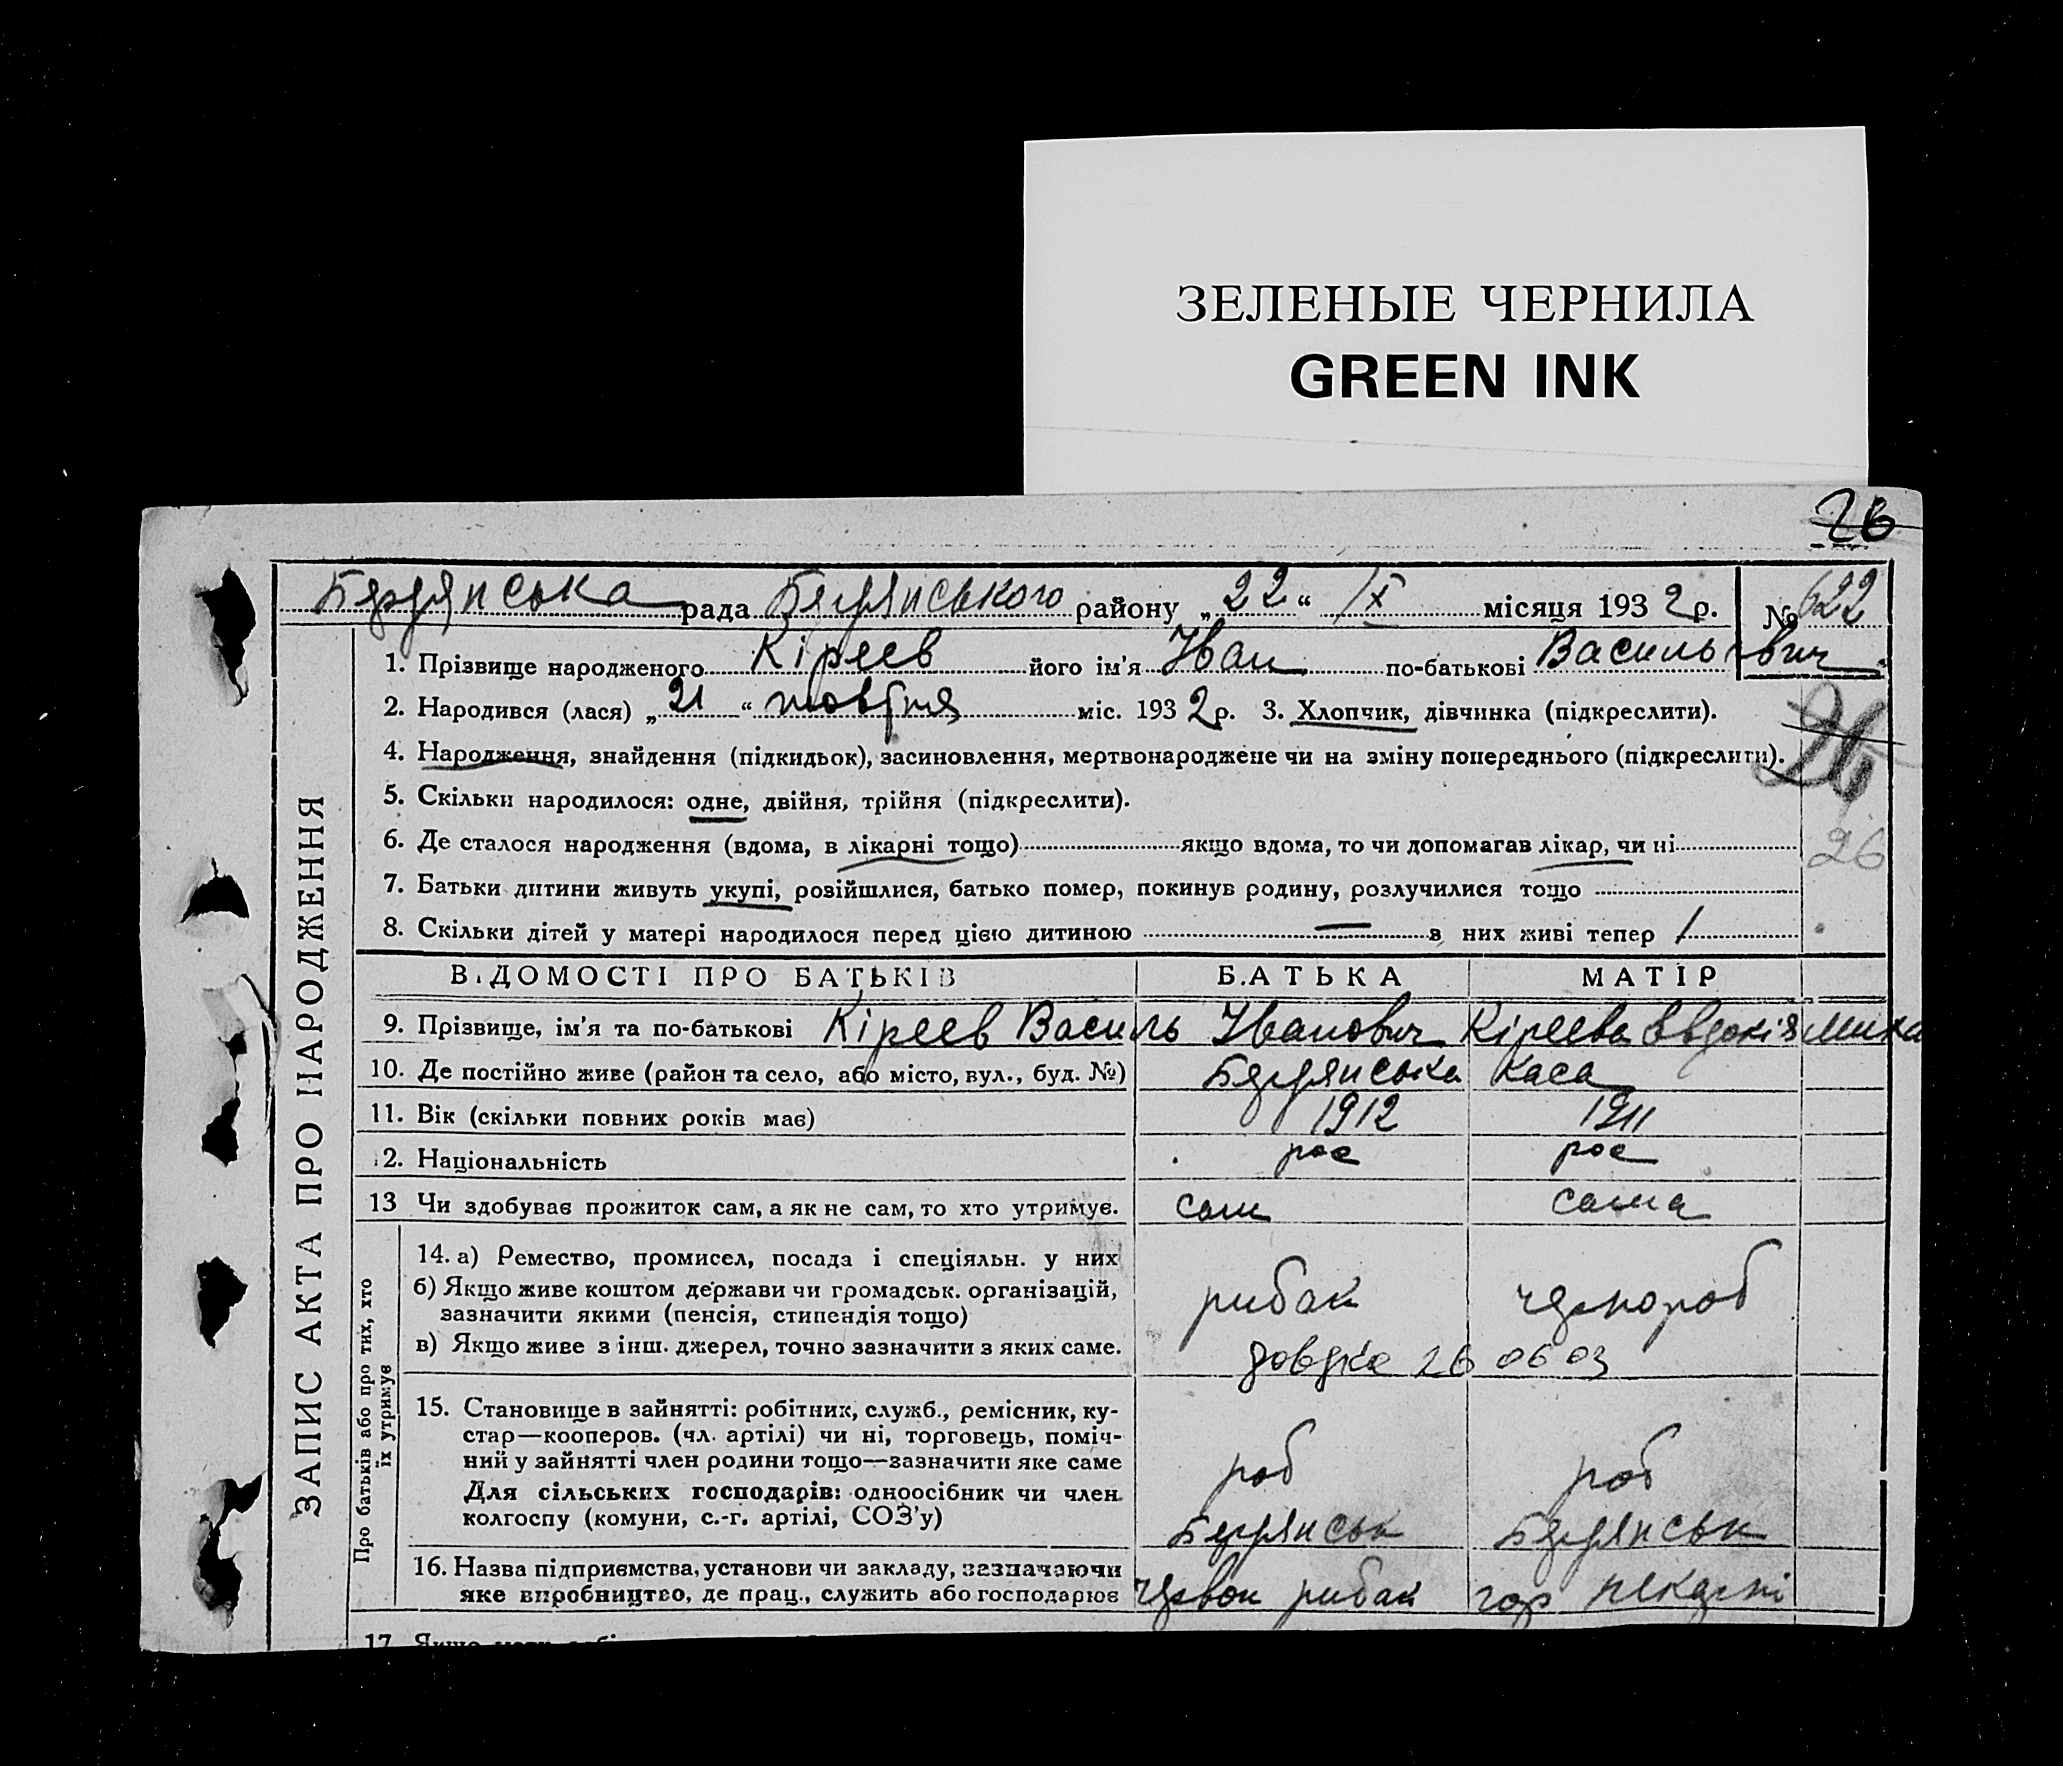 ЗЕЛЕНЫЕ ЧЕРНИЛА
GREEN INK
26
Бердянська рада Бердянського району „22“ IX місяця 1932 р. № 622
1. Прізвище народженого Кіреев його ім'я Іван по-батькові Васильович
2. Народився (лася) „21“ жовтня міс. 1932 р. 3. Хлопчик, дівчинка (підкреслити).
4. Народження, знайдення (підкидьок), засиновлення, мертвонароджене чи на зміну попереднього (підкреслити).
5. Скільки народилося: одне, двійня, трійня (підкреслити).
6. Де сталося народження (вдома, в лікарні тощо) якщо вдома, то чи допомагав лікар, чи ні 26
7. Батьки дитини живуть укупі, розійшлися, батько помер, покинув родину, розлучилися тощо
8. Скільки дітей у матері народилося перед цією дитиною — з них живі тепер 1
ЗАПИС АКТА ПРО НАРОДЖЕННЯ
ВІДОМОСТІ ПРО БАТЬКІВ БАТЬКА МАТІР
9. Прізвище, ім'я та по-батькові Кіреев Василь Іванович Кіреева Евдокія Миха
10. Де постійно живе (район та село, або місто, вул., буд. №) Бердянська Каса
11. Вік (скільки повних років має) 1912 1911
12. Національність рос рос
13 Чи здобуває прожиток сам, а як не сам, то хто утримує. сам сама
Про батьків або про тих, хто
їх утримує
14. а) Ремество, промисел, посада і спеціяльн. у них
б) Якщо живе коштом держави чи громадськ. організацій,
зазначити якими (пенсія, стипендія тощо)
рибак чорнороб
в) Якщо живе з інш. джерел, точно зазначити з яких саме.
довідка 26 06 03
15. Становище в зайнятті: робітник, служб., ремісник, ку-
стар—кооперов. (чл. артілі) чи ні, торговець, поміч-
ний у зайнятті член родини тощо—зазначити яке саме
роб роб
Для сільських господарів: одноосібник чи член
колгоспу (комуни, с.-г. артілі, СОЗ'у)
Бердянськ Бердянськ
16. Назва підприємства, установи чи закладу, зазначаючи
яке виробництво, де прац., служить або господарює
Червон рибак гор пекарні
17. Якщо